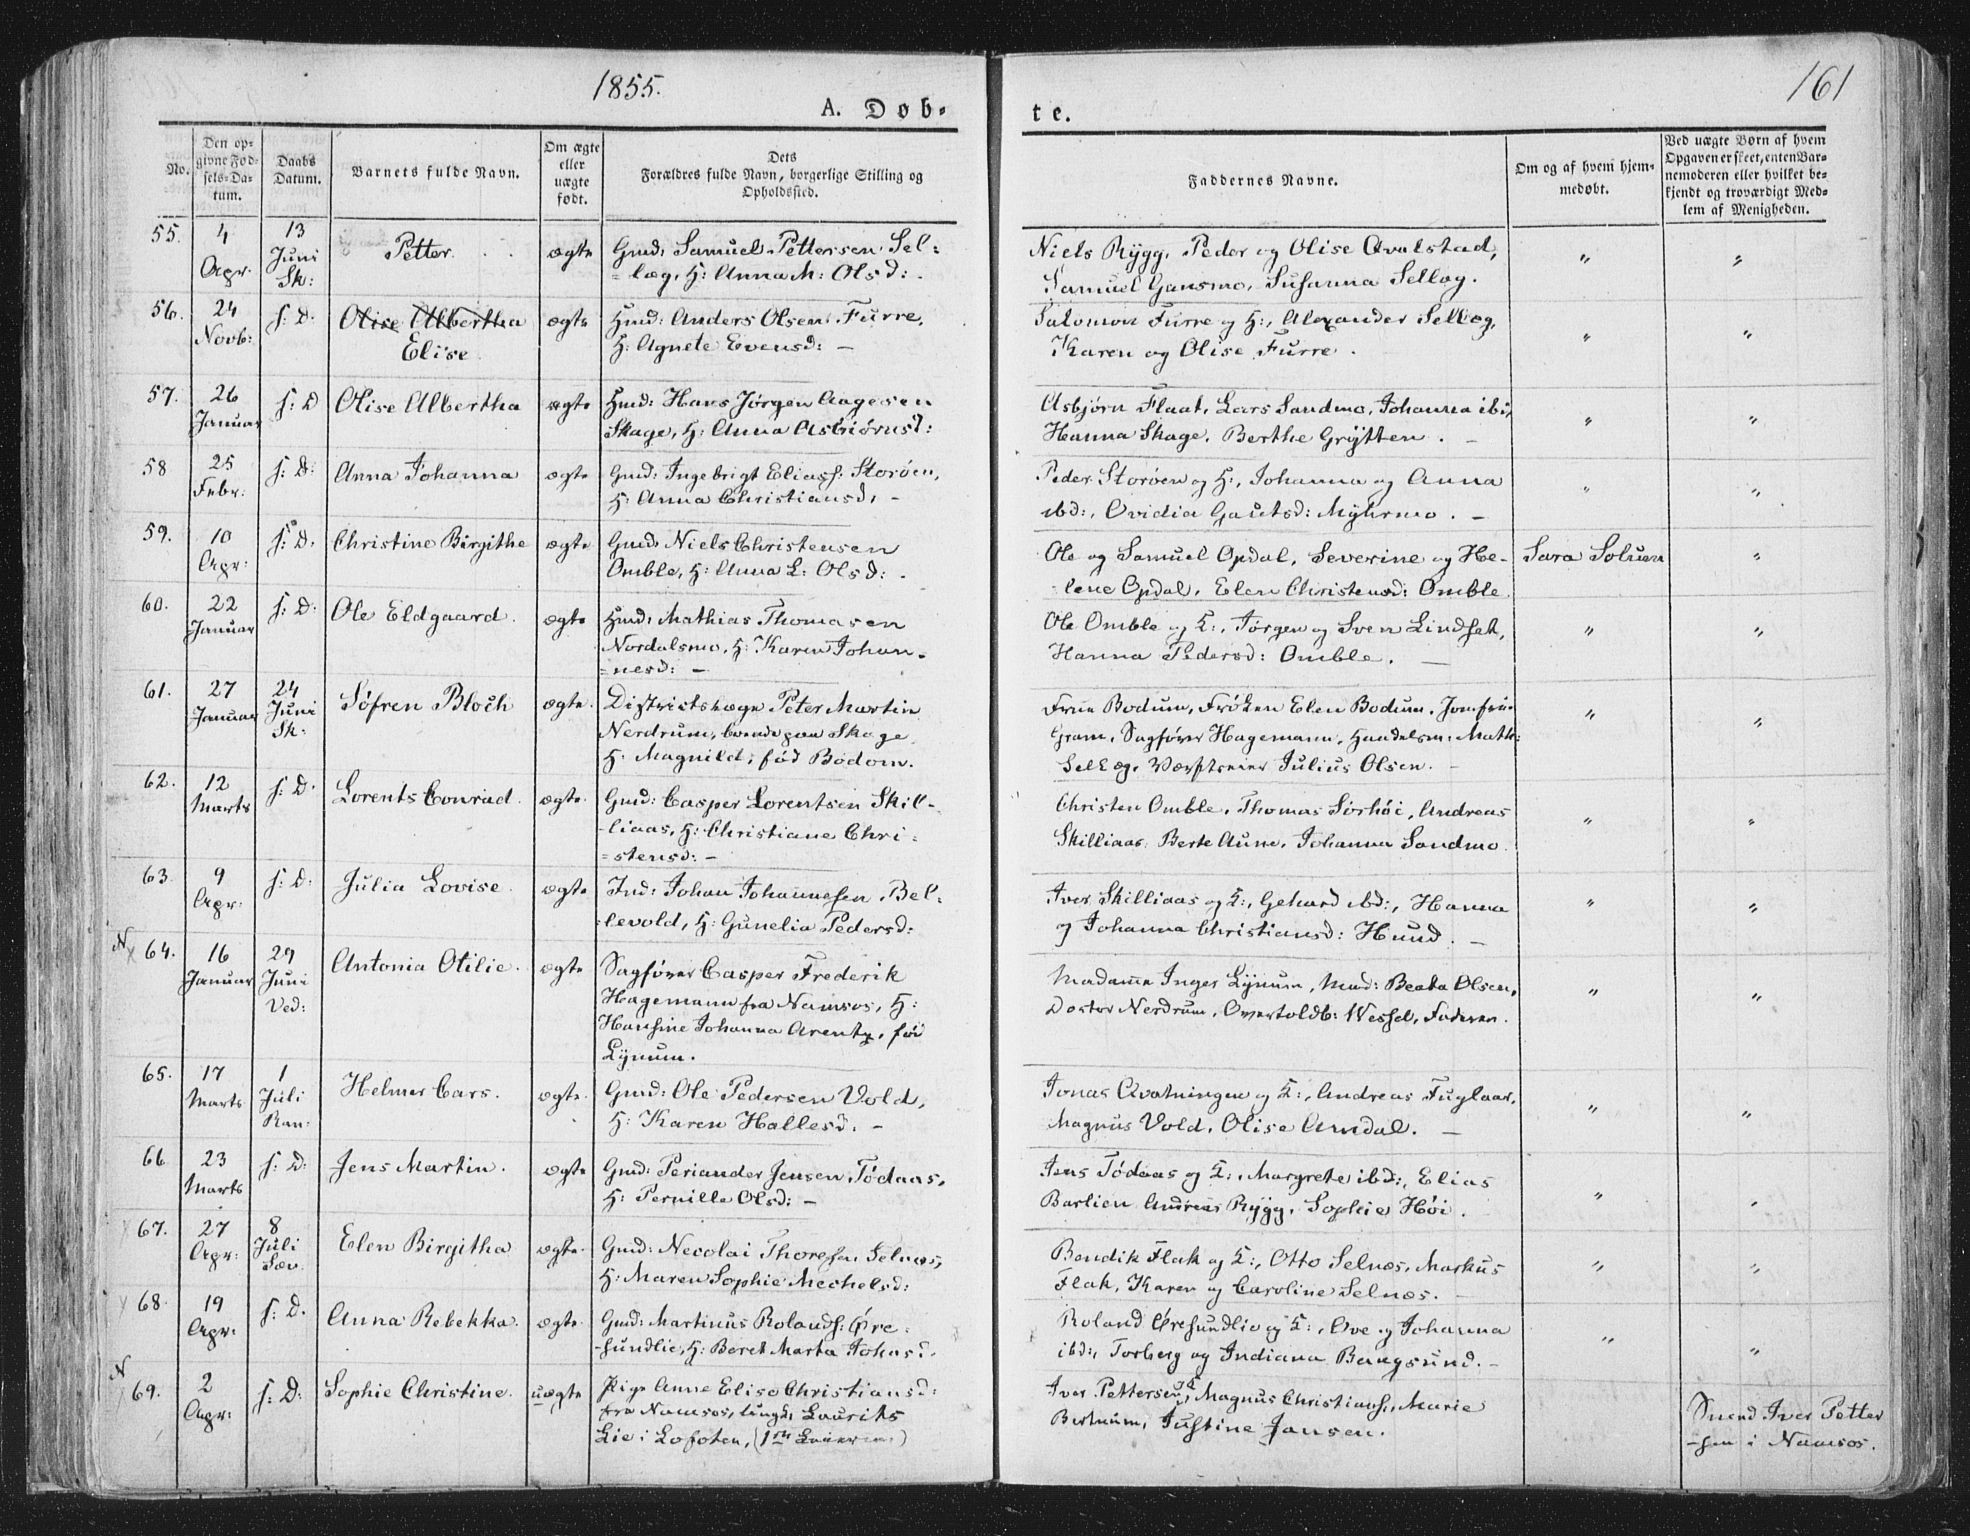 1855.
161
A. Døb-
te.
No.
Den op-
givne Fød-
sels-Da-
tum.
Daabs
Datum.
Barnets fulde Navn.
Om ægte
eller
uægte
født.
Dets
Forældres fulde Navn, borgerlige Stilling og
Opholdssted.
Faddernes Navne.
Om og af hvem hjem-
medøbt.
Ved uægte Børn af hvem
Opgaven er skeet, enten Bar-
nemoderen eller hvilket be-
kjendt og troværdigt Med-
lem af Menigheden.
55. 4 Apr. 13 Juni Sk: Petter. ægte
Gmd: Samuel Pettersen Sel-
=læg, H: Anna M: Olsd:
Niels Rygg, Peder og Olise Qvalstad,
Samuel Gansmo, Susanna Sellæg. " "
56. 24 Novb: s: D. Olise Albertha
Elise ægte
Gmd: Anders Olsen Furre,
H: Agnete Evensd: –
Salomon Furre og H:, Alexander Sellæg,
Karen og Olise Furre. " "
57. 26 Januar s: D Olise Albertha ægte
Gmd: Hans Jørgen Aagesen
Skage, H: Anna Asbiørnsd:
Asbjørn Flaat, Lars Sandmo, Johanna ibi,
Hanna Skage, Berthe Grytten. – " "
58 25 Febr: s: D: Anna Johanna ægte
Gmd: Ingebrigt Eliass: Storøen,
H: Anna Christiansd: –
Peder Storøen og H:, Johanna og Anna
ibd:, Ovidia Gautsd: Myhrmo. – " "
59. 10 Apr: s: D. Christine Birgithe ægte
Gmd: Niels Christensen
Omble, H: Anna L: Olsd:
Ole og Samuel Opdal, Severine og He-
-lene Opdal, Elen Christensd: Omble. Sara Soluem "
60. 22 Januar s: D: Ole Eldgaard. ægte
Hmd: Mathias Thomasen
Nordalsmo, H: Karen Johan-
=nesd: –
Ole Omble og H:, Jørgen og Sven Lindset,
Hanna Pedersd: Omble. – " "
61. 27 Januar 24 Juni Sk: Søfren Bloch ægte.
Distriktslæge Peter Martin
Nerdrum, boende paa Skage
H: Magnild, fød Bodom.
Frue Bodum, Frøken Elen Bodum, Jomfru
Gram, Sagfører Hagemann, Handelsm: Math:
Sellæg, Værftseier Julius Olsen. – " "
62. 12 Marts s: D. Lorents Conrad. ægte.
Gmd: Casper Lorentsen Skil-
-liaas, H: Christiane Chri-
=stensd: –
Christen Omble, Thomas Sørhøi, Andreas
Skilliaas, Berte Aune, Johanna Sandmo. " "
63. 9 Apr: s: D: Julia Lovise. ægte
Ind: Johan Johannesen Bel-
=levold, H: Gunelia Pedersd:
Iver Skilliaas og H:, Gerhard ibd:, Hanna
og Johanna Christiansd: Hund. – " "
N x 64. 16 Januar 29 Juni Ved: Antonia Otilie. ægte
Sagfører Casper Frederik
Hagemann fra Namsos, H:
Hansine Johanna Arentz, fød
Lynum.
Madame Inger Lynum, Mad: Beata Olsen,
Doctor Nerdrum, Overtoldb: Wessel, Faderen. " "
65. 17 Marts 1 Juli Ran: Helmer Cars. ægte.
Gmd: Ole Pedersen Vold,
H: Karen Hallesd: –
Jonas Qvatningen og H:, Andreas Fuglaar,
Magnus Vold, Olise Amdal. – " "
66 23 Marts s: D: Jens Martin. ægte
Gmd: Periander Jensen Tødaas,
H: Pernille Olsd: –
Jens Tødaas og H:, Margrete ibd:, Elias
Barlien, Andreas Rygg, Sophie Høi. " "
67. 27 Apr: 8 Juli Sæv. Elen Birgitha ægte.
Gmd: Necolai Thoresen Selnæs,
H: Maren Sophie Mechelsd:
Bendik Flak og H:, Otto Selnæs, Markus
Flak, Karen og Caroline Selnæs. – " "
68. 19 Apr: s: D. Anna Rebekka. ægte.
Gmd: Martinus Rolands: Øre-
-sundlie, H: Beret Marta Johasd.
Roland Øresundlie og H:, Ove og Johanna
ibd:, Torberg og Indiana Bangsund. – " "
N 69. 2 Apr: s: D: Sophie Christine. uægte
Pige Anne Elise Christiansd:
fra Namsos, Ungk: Laurits
Lie i Lofoten, (1ste
Iver Pettersen, Magnus Christians:, Marie
Bertnum, Justine Jansen.
Smed Iver Petter
-sen i Namsos.